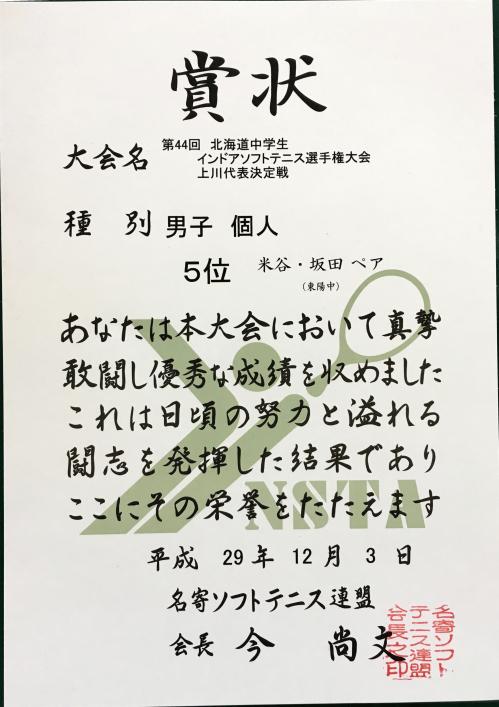 賞状
大会名 第44回 北海道中学生
インドアソフトテニス選手権大会
上川代表決定戦
種別 男子 個人
5位 米谷・坂田 ペア
(東陽中)
あなたは本大会において真摯
敢闘し優秀な成績を収めました
これは日頃の努力と溢れる
闘志を発揮した結果であり
ここにその栄誉をたたえます
NSTA
平成 29年 12月 3日
名寄ソフトテニス連盟
会長 今 尚文
名寄ソフト
テニス連盟
会長之印